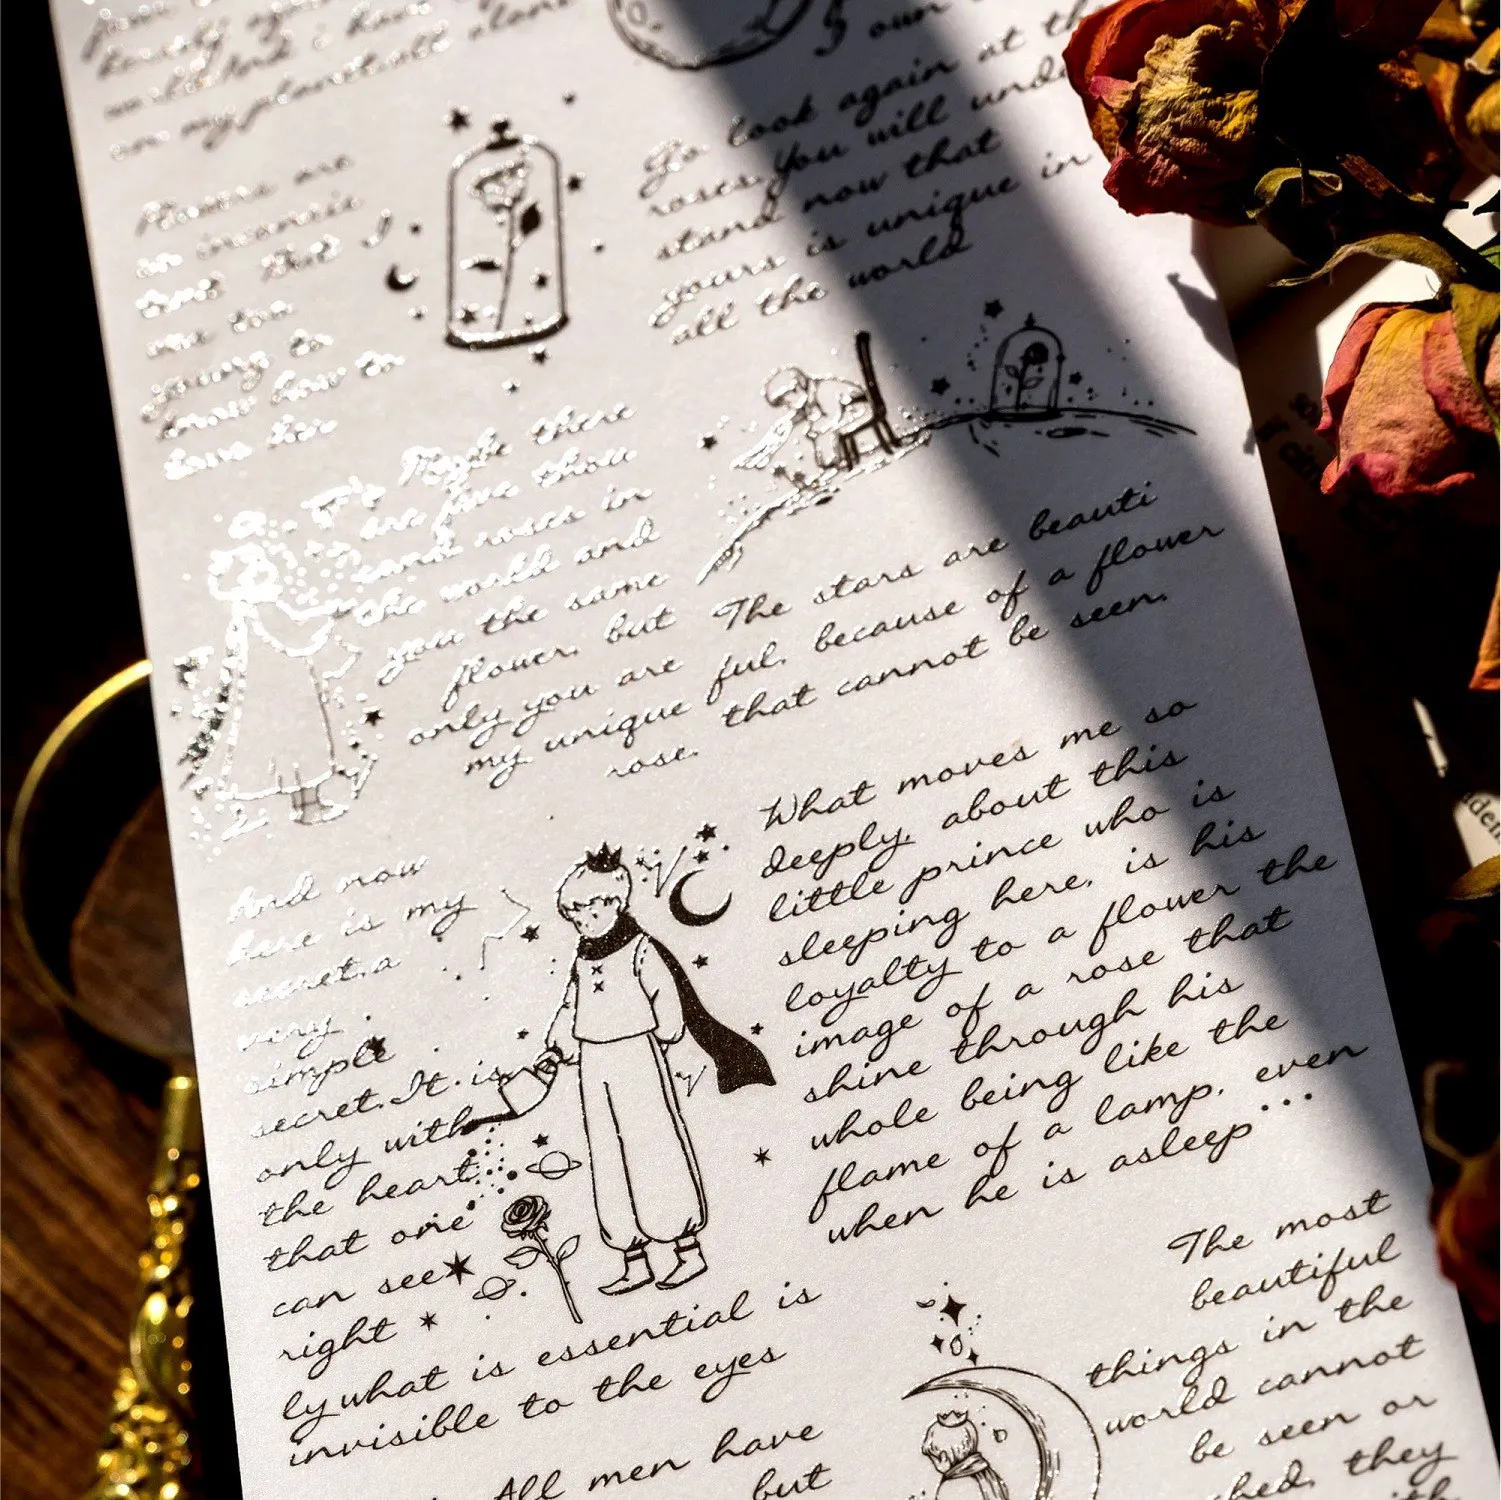 on my planet, all
Flowers are
so inconsis
tent. But I
was too
young to
know how to
love her
I own
Go look again at th
roses. You will unde
stand now that
yours is unique in
all the world
Maybe there
are five thou
sand roses in
the world and
you the same
flower, but
only you are
my unique
rose.
The stars are beauti
ful, because of a flower
that cannot be seen.
What moves me so
deeply, about this
little prince who is
sleeping here, is his
loyalty to a flower the
image of a rose that
shine through his
whole being like the
flame of a lamp, even
when he is asleep...
And now
here is my
secret, a
very
simple
secret. It is
only with
the heart
that one
can see
right
ly what is essential is
invisible to the eyes
The most
beautiful
things in the
world cannot
be seen or
ched, they
All men have
but